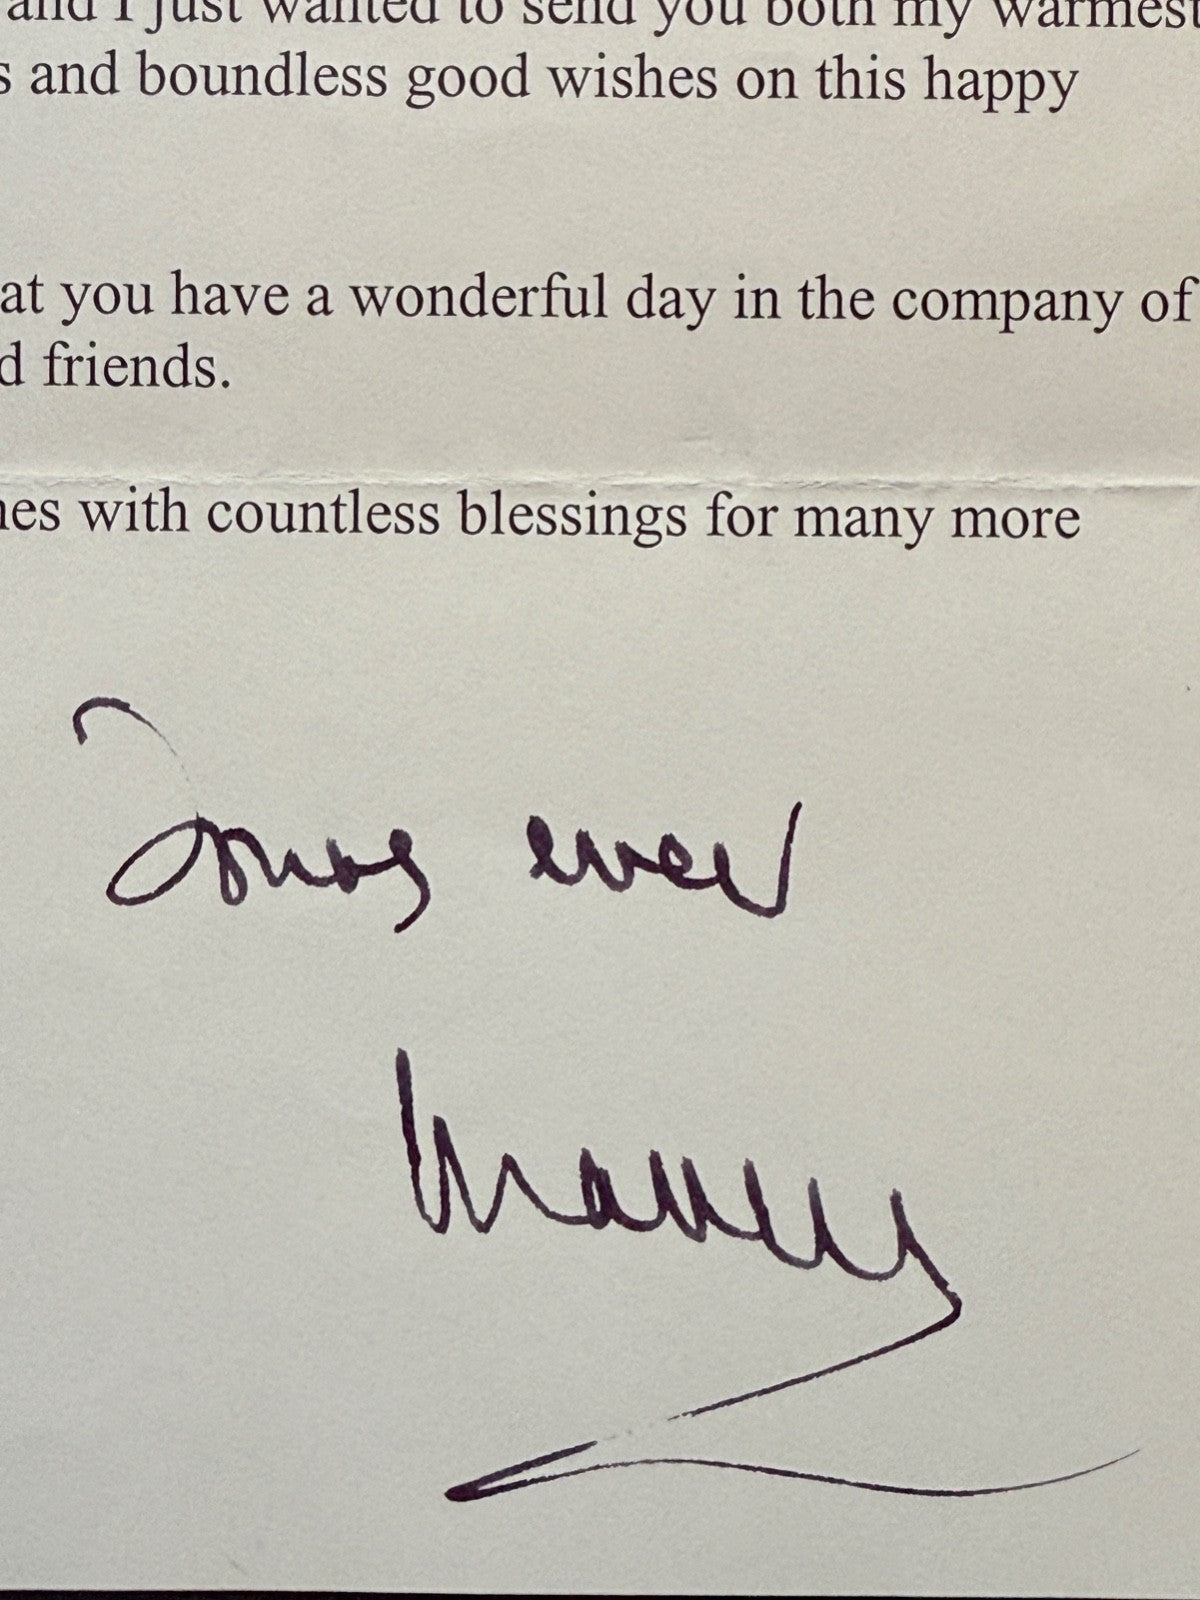 and I just wanted to send you both my warmest
s and boundless good wishes on this happy
at you have a wonderful day in the company of
d friends.
hes with countless blessings for many more
Yours ever